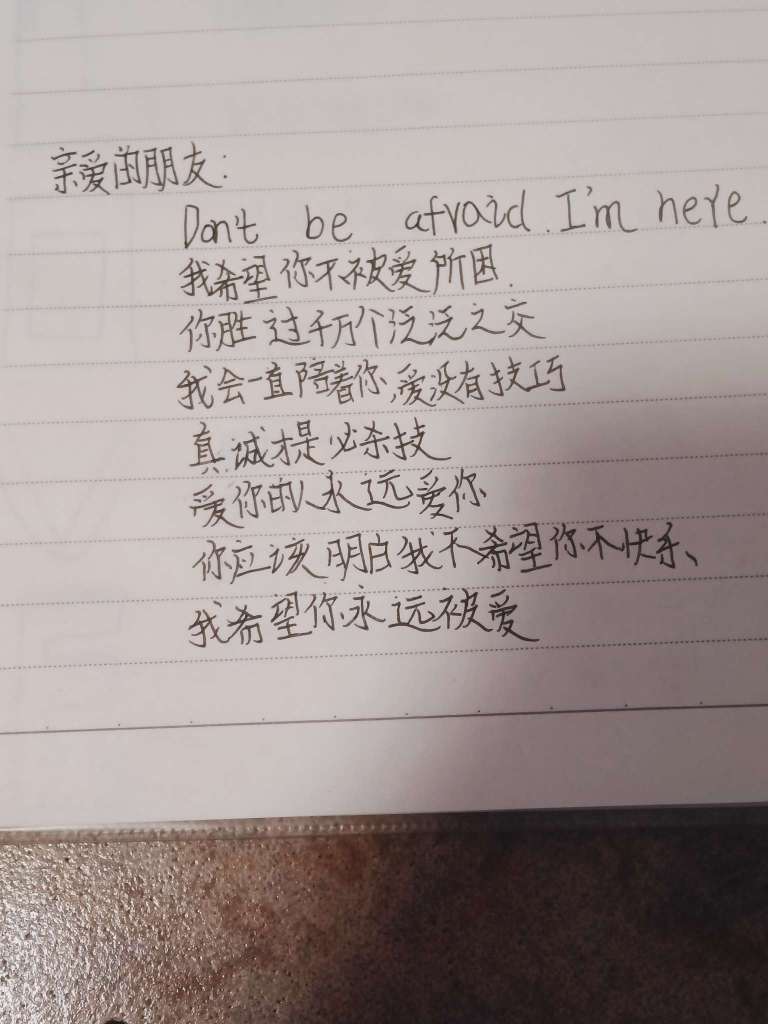 亲爱的朋友:
Don't be afraid. I'm here.
我希望你不被爱所困.
你胜过千万个泛泛之交
我会一直陪着你,爱没有技巧
真诚才是必杀技
爱你的人永远爱你
你应该明白我不希望你不快乐、
我希望你永远被爱